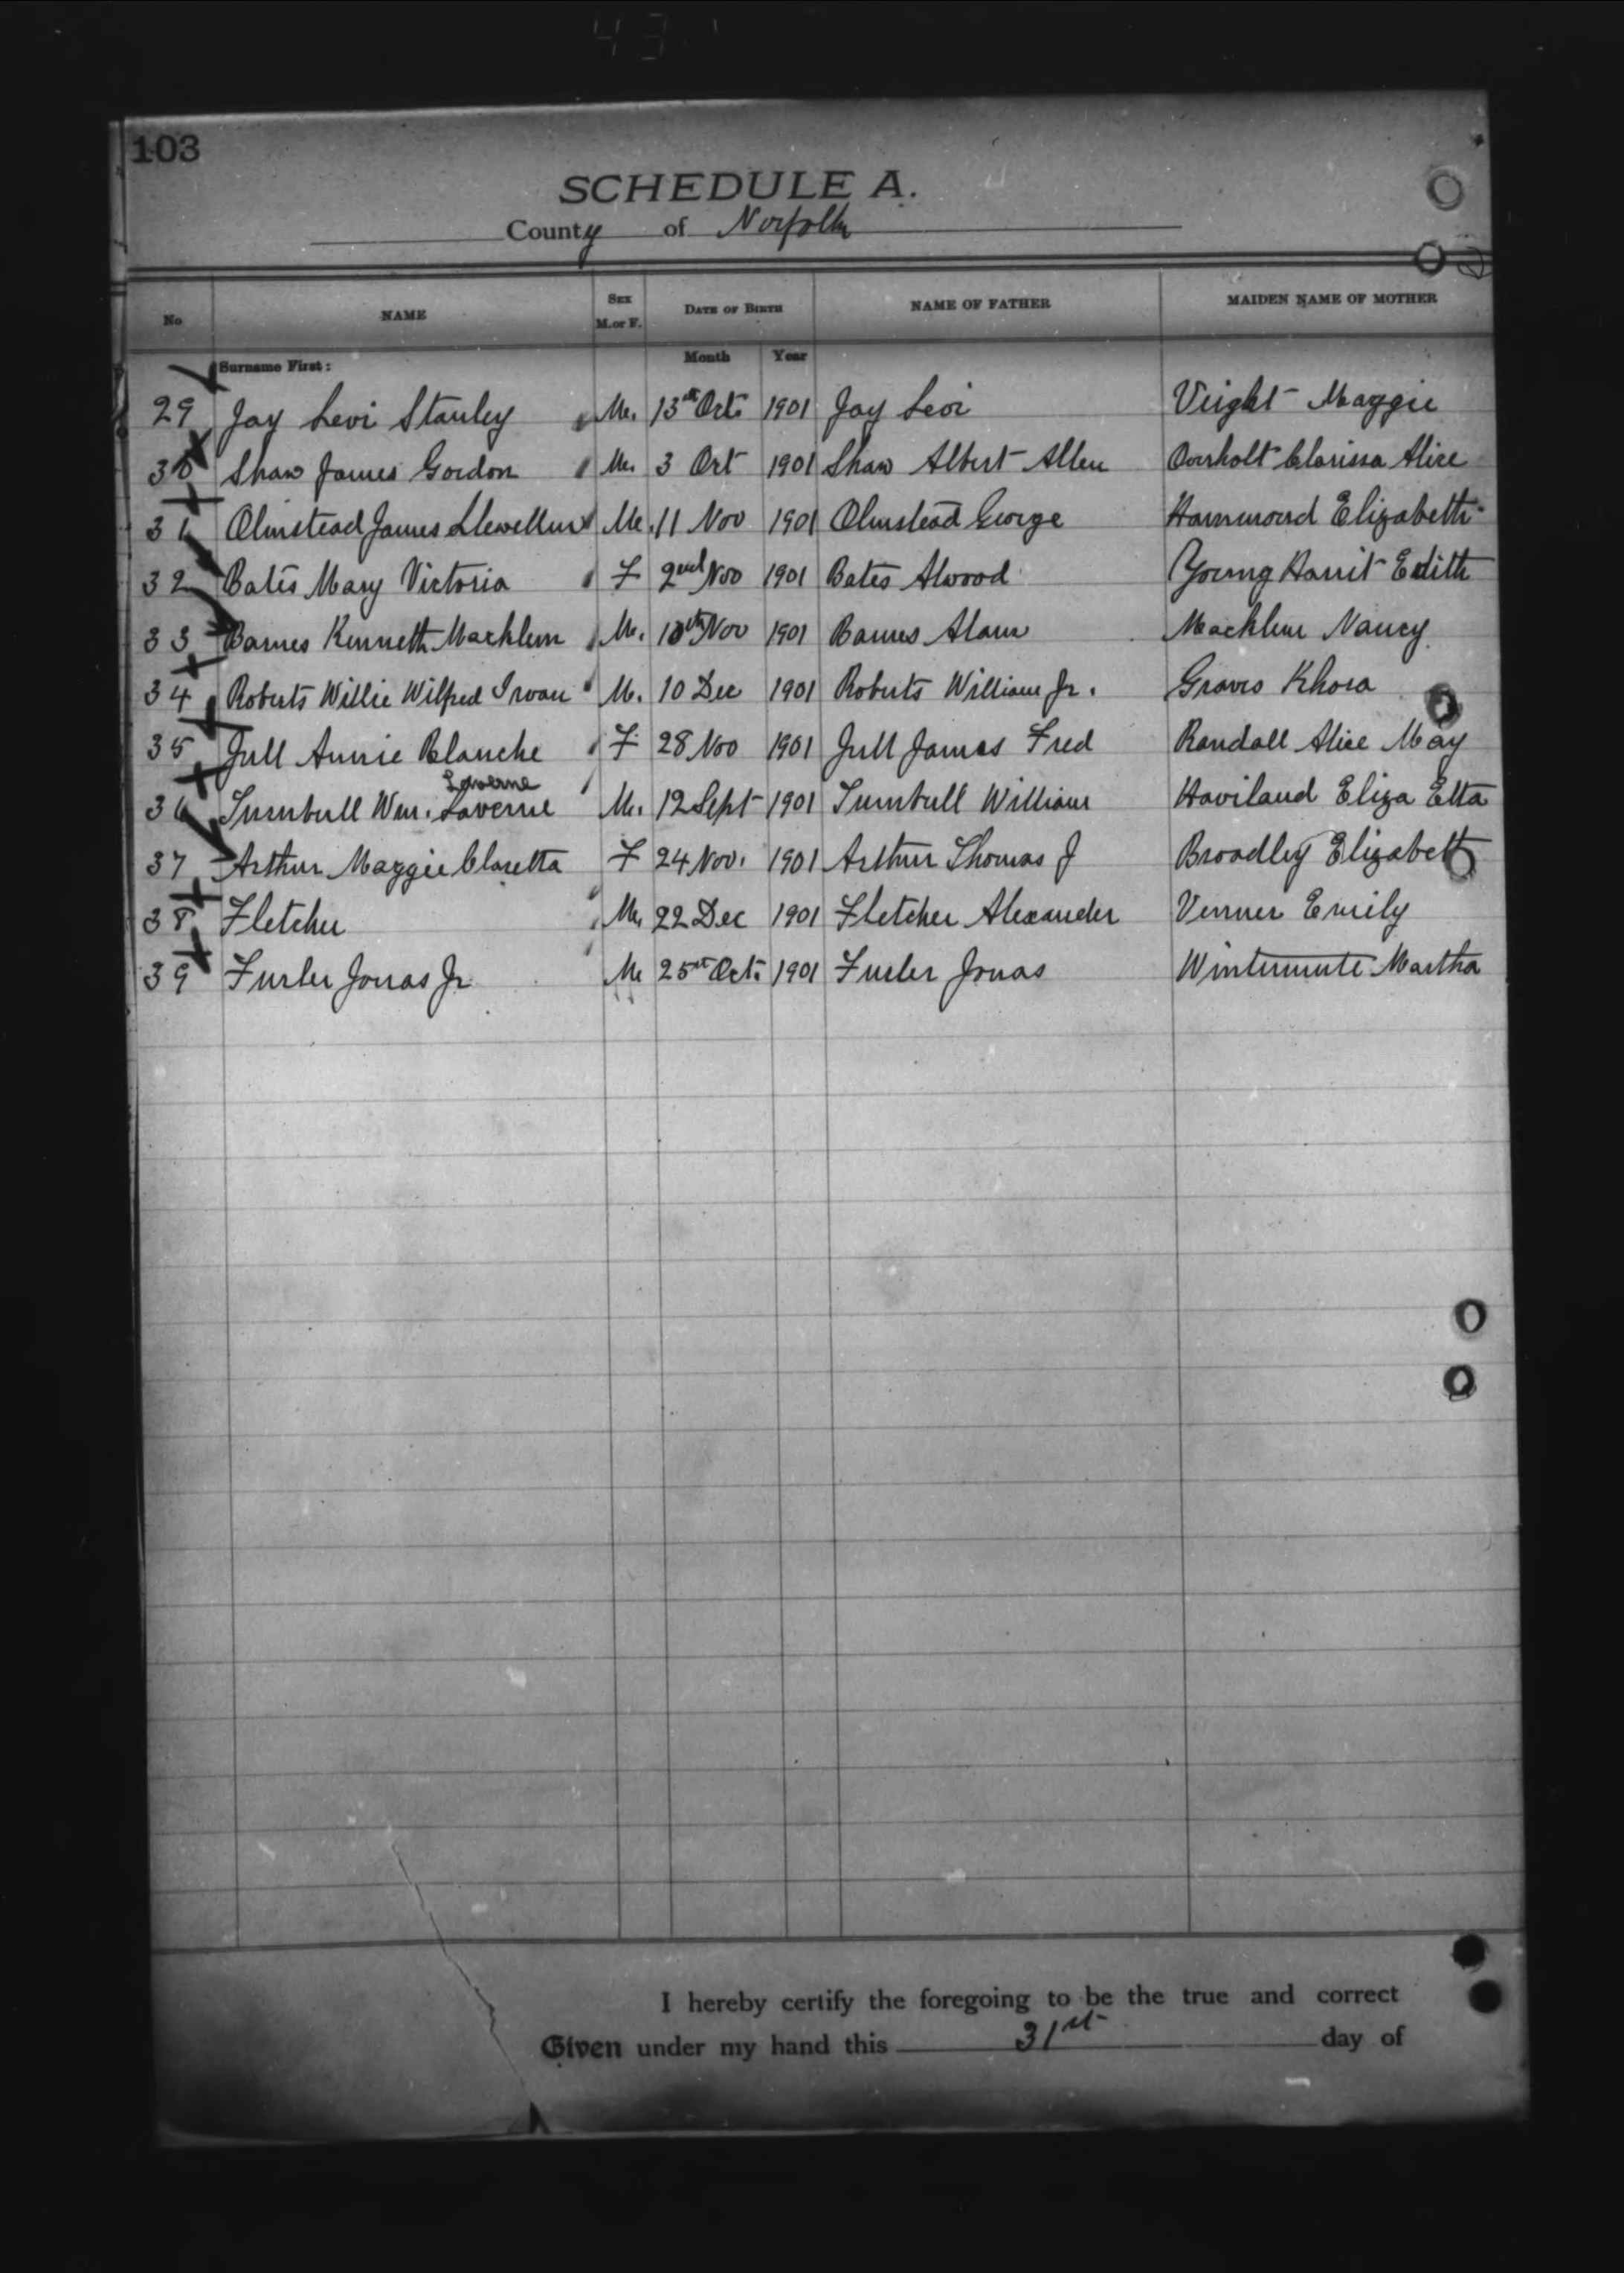 103
SCHEDULE A.
County of Norfolk
No NAME SEX M.or F. DATE OF BIRTH NAME OF FATHER MAIDEN NAME OF MOTHER
Surname First: Month Year
29 Jay Levi Stanley M. 13th Oct. 1901 Jay Levi Veight Maggie
30 Shaw James Gordon M. 3 Oct 1901 Shaw Albert Allen Overholt Clarissa Alice
31 Olmstead James Llewellun M. 11 Nov 1901 Olmstead George Hammond Elizabeth
32 Bates Mary Victoria F 2nd Nov 1901 Bates Alwood Young Harrit Edith
33 Barnes Kenneth Macklem M. 10th Nov 1901 Barnes Alam Macklem Nancy
34 Roberts Willie Wilfred Irvan M. 10 Dec 1901 Roberts William Jr. Graves Rhora
35 Jull Annie Blanche F 28 Nov 1901 Jull James Fred Randall Alice May
Laverne
36 Turnbull Wm. Laverne M. 12 Sept 1901 Turnbull William Haviland Eliza Etta
37 Arthur Maggie Claretta F 24 Nov. 1901 Arthur Thomas J Broadley Elizabeth
38 Fletcher M. 22 Dec 1901 Fletcher Alexander Venner Emily
39 Furler Jonas Jr M 25st Oct. 1901 Furler Jonas Wintermute Martha
I hereby certify the foregoing to be the true and correct
Given under my hand this 31st day of